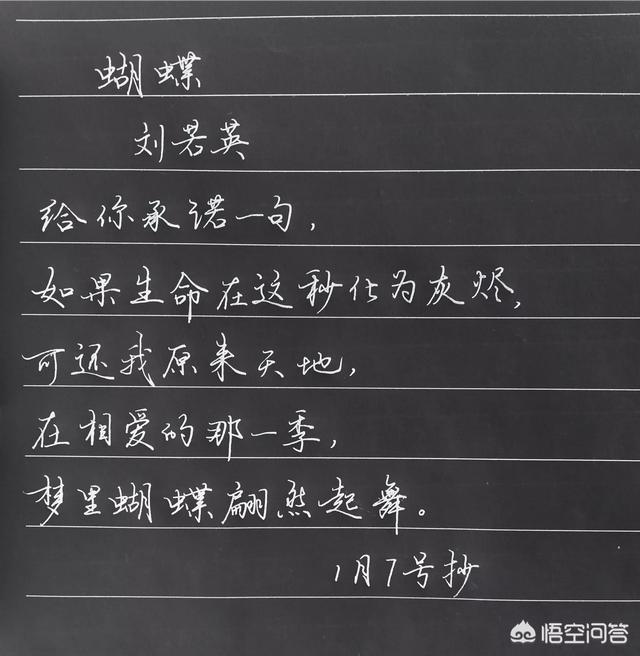 蝴蝶
刘若英
给你承诺一句,
如果生命在这秒化为灰烬,
可还我原来天地,
在相爱的那一季,
梦里蝴蝶翩然起舞。
1月7号抄
悟空问答